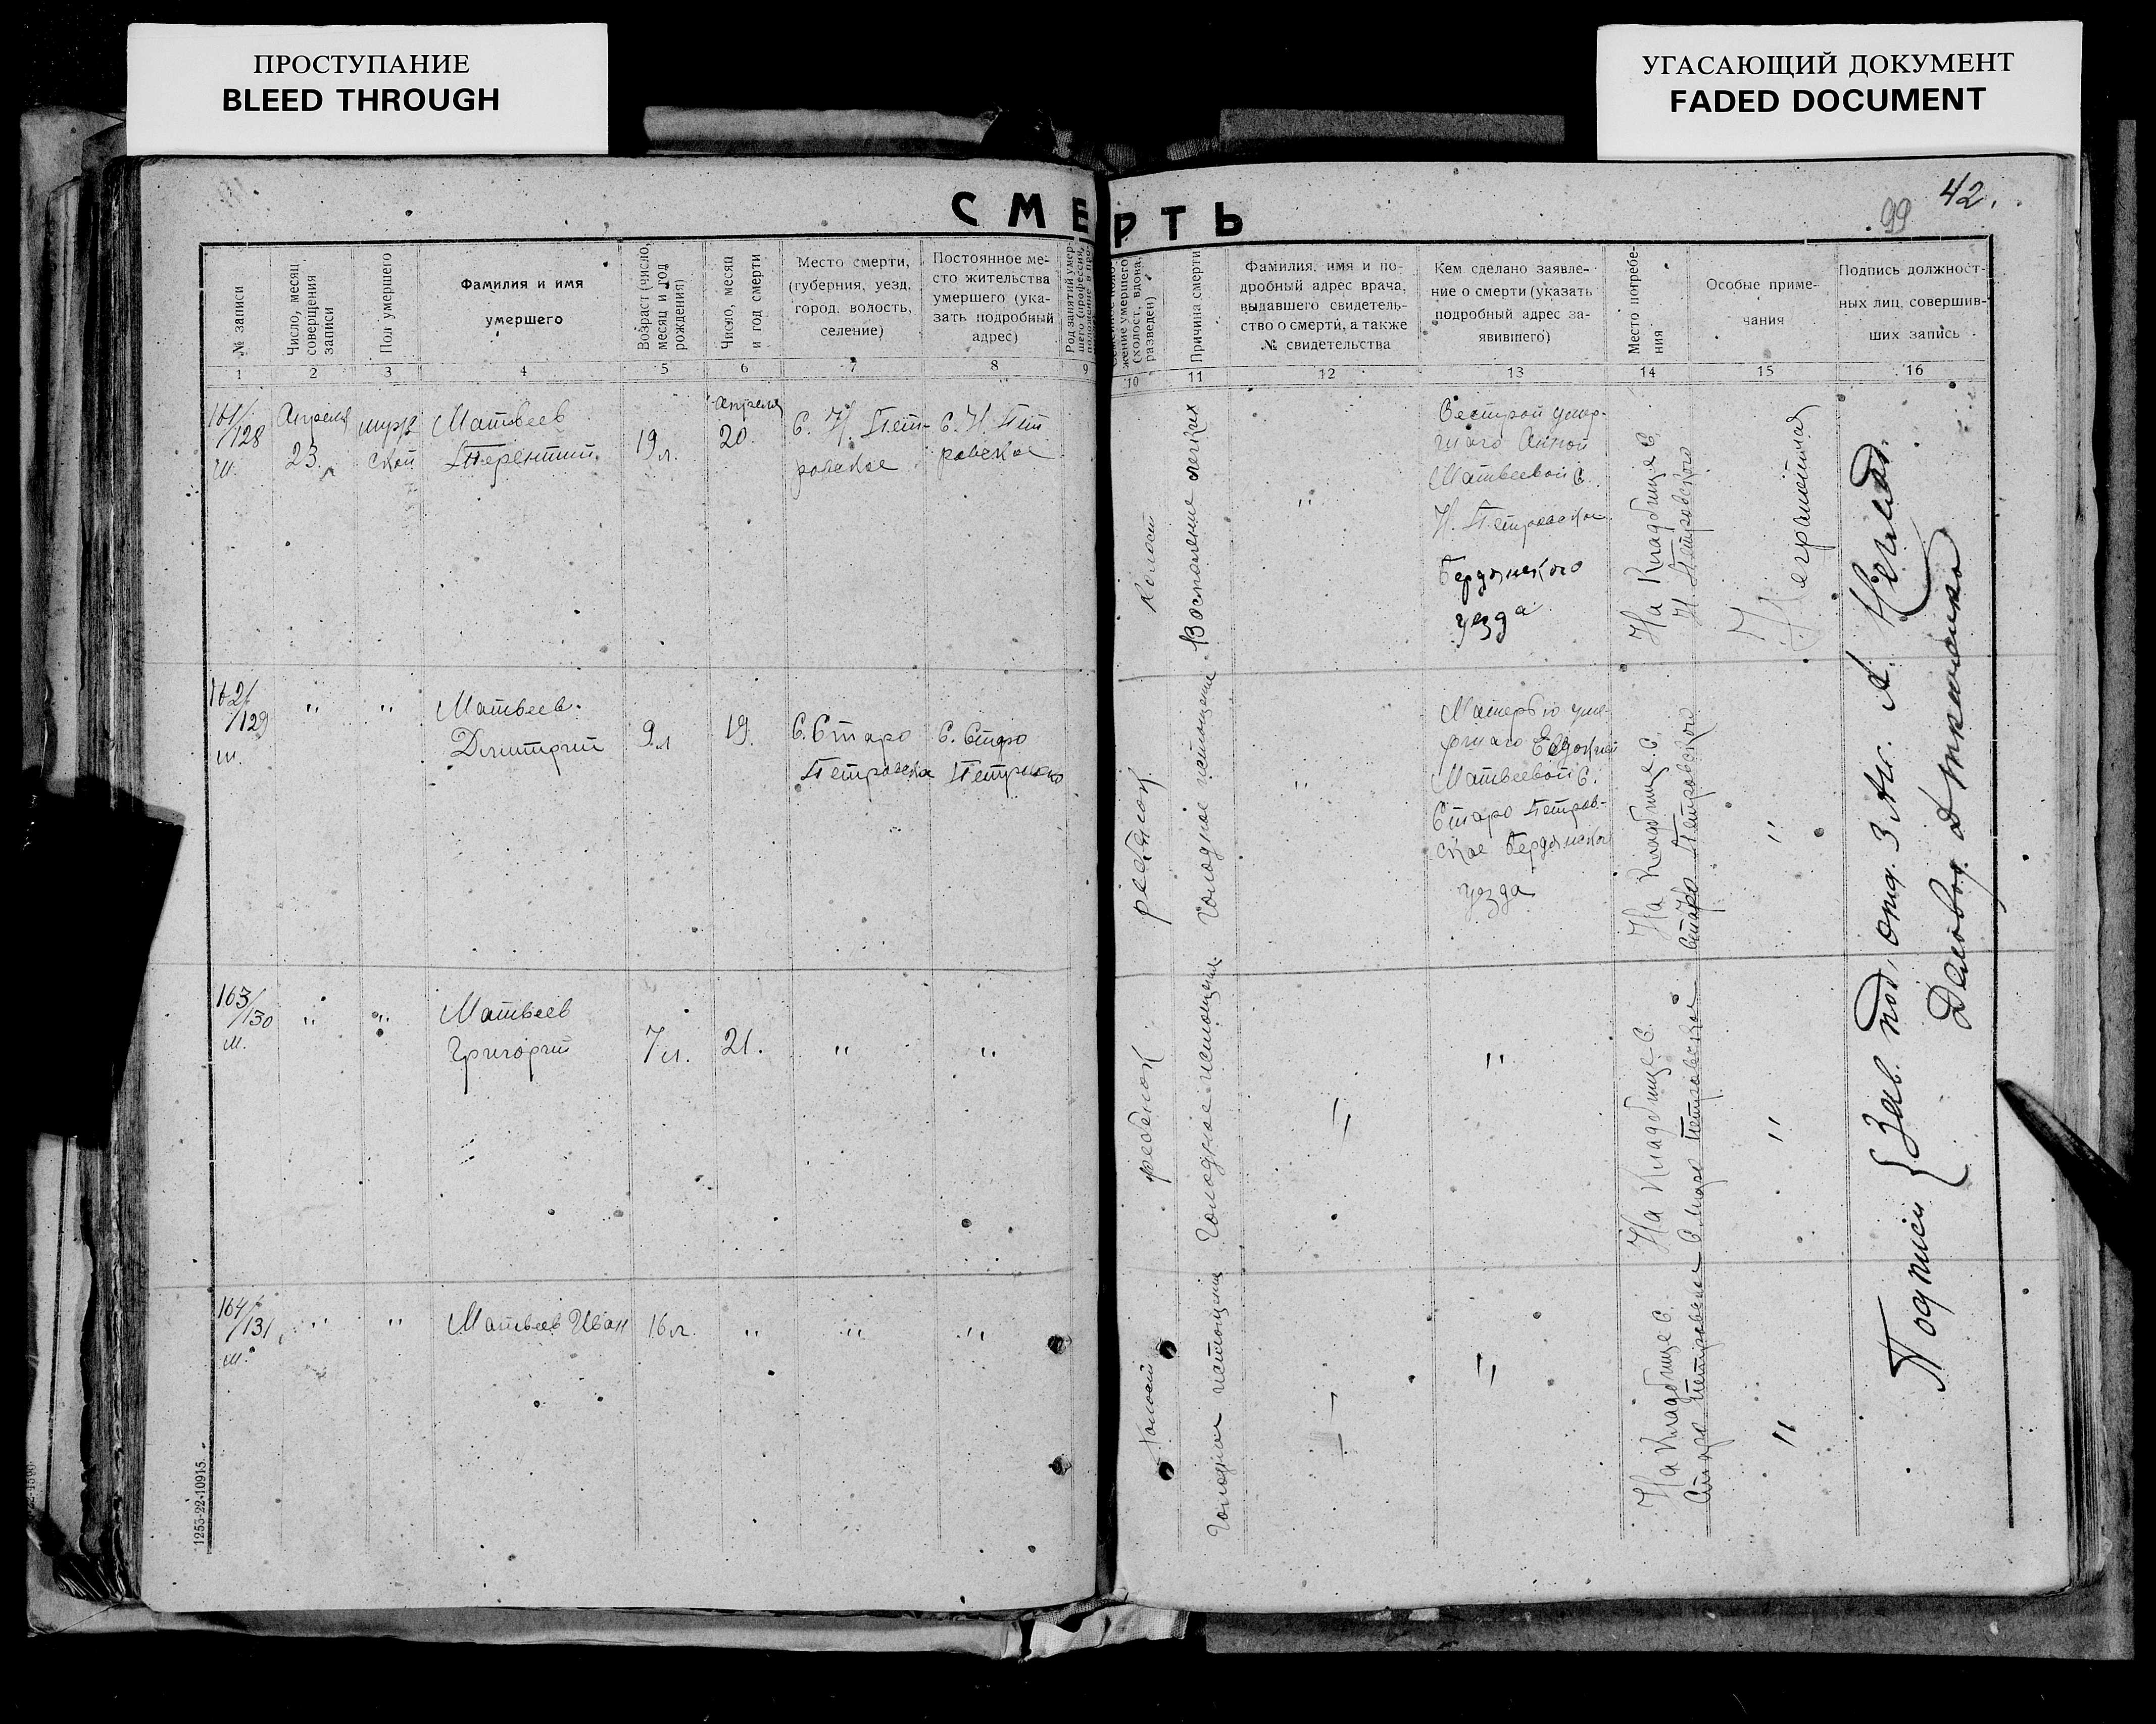 ПРОСТУПАНИЕ
BLEED THROUGH
УГАСАЮЩИЙ ДОКУМЕНТ
FADED DOCUMENT
42.
99
СМЕРТЬ
№ записи
Число, месяц
совершения
записи
Пол умершего
Фамилия и имя
умершего
Возраст (число,
месяц и год
рождения)
Число, месяц
и год смерти
Место смерти,
(губерния, уезд,
город, волость,
селение)
Постоянное ме-
сто жительства
умершего (ука-
зать подробный
адрес)
Род занятий умер-
шего (профессия,
положение в про-
жение умершего
(холост, вдова,
разведен)
Причина смерти
Фамилия, имя и по-
дробный адрес врача,
выдавшего свидетель-
ство о смерти, а также
№ свидетельства
Кем сделано заявле-
ние о смерти (указать
подробный адрес за-
явившего)
Место погребе-
ния
Особые приме-
чания
Подпись должност-
ных лиц, совершив-
ших запись
1 2 3 4 5 6 7 8 9 10 11 12 13 14 15 16
161/
/128
м.
Апреля
23.
муж
ской
Матвеев
Терентий.
19 л.
Апреля
20.
С. Н. Пет-
ровское
С. Н. Пет
ровское
Холост
Воспаление легких
"
Сестрой умер-
шаго Анной
Матвеевой С.
Н. Петровское
Бердянского
уезда
На Кладбище С.
Н. Петровского
Неграмотная
162/
/129
м.
" "
Матвеев.
Дмитрий
9 л
19.
С. Старо
Петровска
С. Старо
ребенок
Голодное истощение
"
Матерью уме-
ршаго Евдокией
Матвеевой С.
Старо Петров-
ское Бердянского
уезда
На Кладбище С.
Старо Петровского
"
163/
/130
м.
" "
Матвеев
Григорий
7 л.
21.
" "
ребенок
Голодное истощение
"
"
На Кладбище С.
Старо Петровское
"
164/
/131
м.
" "
Матвеев Иван
16 л.
" " "
Холост
Голодное истощение
"
"
На Кладбище С.
Старо Петровское
"
Подписи { Зав. под. отд. З.
Деловод
1253-22-10915.